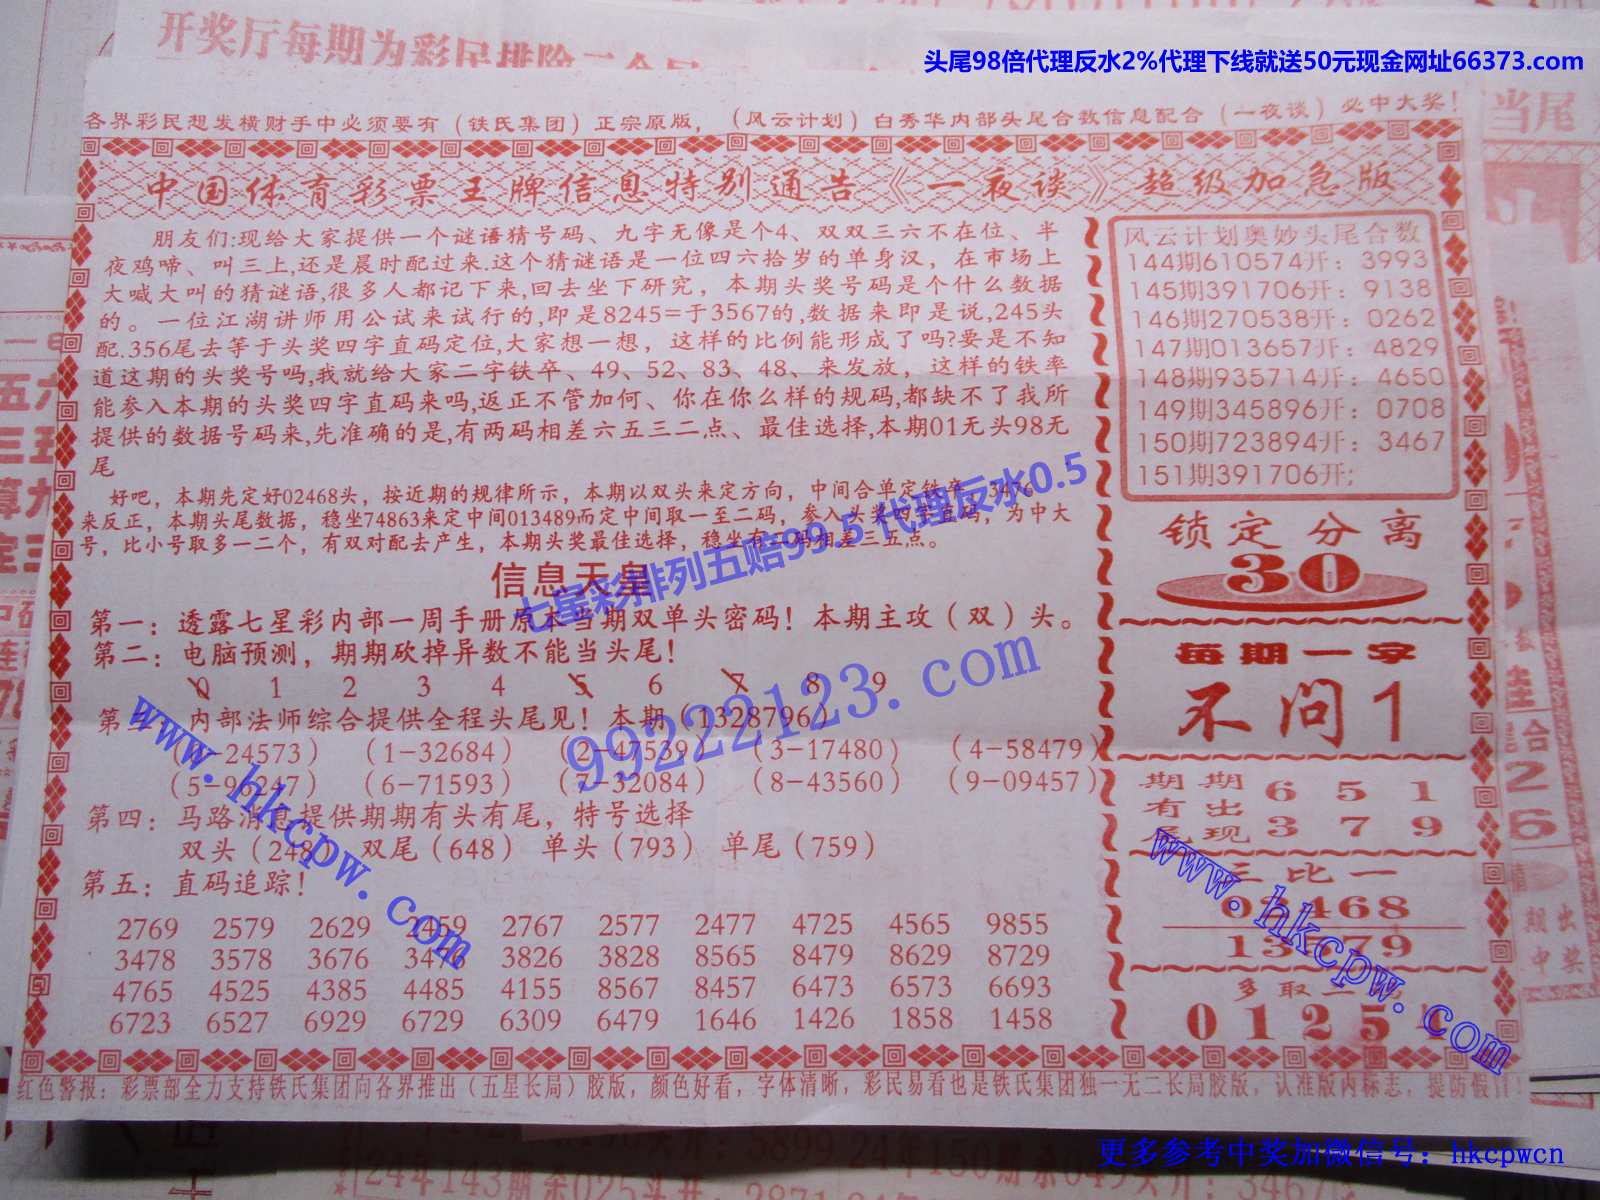 开奖厅每期为彩民排除二个号
头尾98倍代理反水2%代理下线就送50元现金网址66373.com
各界彩民想发横财手中必须要有（铁氏集团）正宗原版，（风云计划）白秀华内部头尾合数信息配合（一夜谈）必中大奖！
中国体育彩票王牌信息特别通告《一夜谈》超级加急版
朋友们:现给大家提供一个谜语猜号码、九字无像是个4、双双三六不在位、半
夜鸡啼、叫三上,还是晨时配过来.这个猜谜语是一位四六拾岁的单身汉，在市场上
大喊大叫的猜谜语,很多人都记下来,回去坐下研究，本期头奖号码是个什么数据
的。一位江湖讲师用公试来试行的,即是8245=于3567的,数据来即是说,245头
配.356尾去等于头奖四字直码定位,大家想一想，这样的比例能形成了吗?要是不知
道这期的头奖号吗,我就给大家二字铁卒、49、52、83、48、来发放，这样的铁率
能参入本期的头奖四字直码来吗,返正不管加何、你在你么样的规码,都缺不了我所
提供的数据号码来,先准确的是,有两码相差六五三二点、最佳选择,本期01无头98无
尾
好吧，本期先定好02468头，按近期的规律所示，本期以双头来定方向，中间合单定铁卒，3476
来反正，本期头尾数据，稳坐74863来定中间013489而定中间取一至二码，参入头奖四字直码，为中大
号，比小号取多一二个，有双对配去产生，本期头奖最佳选择，稳坐有二码相差三五点。
信息天皇
七星彩排列五赔99.5 代理反水0.5
第一：透露七星彩内部一周手册原本当期双单头密码！本期主攻（双）头。
第二：电脑预测，期期砍掉异数不能当头尾！
0 1 2 3 4 5 6 7 8 9
第三：内部法师综合提供全程头尾见！本期（1328796）
（0-24573）（1-32684）（2-47539）（3-17480）（4-58479）
（5-96247）（6-71593）（7-32084）（8-43560）（9-09457）
第四：马路消息提供期期有头有尾，特号选择
双头（248）双尾（648）单头（793）单尾（759）
第五：直码追踪！
2769 2579 2629 2459 2767 2577 2477 4725 4565 9855
3478 3578 3676 3476 3826 3828 8565 8479 8629 8729
4765 4525 4385 4485 4155 8567 8457 6473 6573 6693
6723 6527 6929 6729 6309 6479 1646 1426 1858 1458
风云计划奥妙头尾合数
144期610574开：3993
145期391706开：9138
146期270538开：0262
147期013657开：4829
148期935714开：4650
149期345896开：0708
150期723894开：3467
151期391706开;
锁定分离
30
每期一字
不问1
期期 6 5 1
有出
现 3 7 9
三比一
468
多取二
0125
99222123.com
www.hkcpw.com
www.hkcpw.com
红色警报：彩票部全力支持铁氏集团向各界推出（五星长局）胶版，颜色好看，字体清晰，彩民易看也是铁氏集团独一无二长局胶版，认准版内标志，提防假冒！
更多参考中奖加微信号：hkcpwcn
当尾
合
2
6
期出
中奖